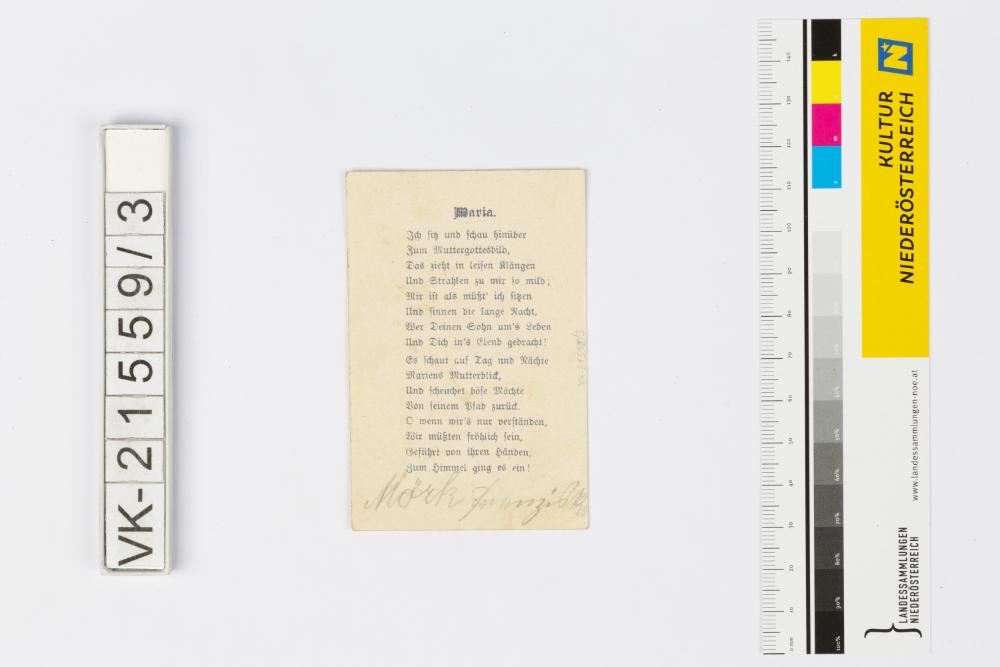 VK-21559/3
Maria.
Ich sitz und schau hinüber
Zum Muttergottesbild,
Das zieht in leisen Klängen
Und Strahlen zu mir so mild;
Mir ist als müßt' ich sitzen
Und sinnen die lange Nacht,
Wer Deinen Sohn um's Leben
Und Dich in's Elend gebracht!
Es schaut auf Tag und Nächte
Mariens Mutterblick,
Und scheuchet böse Mächte
Von seinem Pfad zurück.
O wenn wir's nur verständen,
Wir müßten fröhlich sein,
Geführt von ihren Händen,
Zum Himmel ging es ein!
Mörk Franziska
VK-21559/3
KULTUR
NIEDERÖSTERREICH
www.landessammlungen-noe.at
LANDESSAMMLUNGEN
NIEDERÖSTERREICH
k
y
m
c
10%
20%
30%
40%
50%
60%
70%
80%
90%
100%
0 mm
10
20
30
40
50
60
70
80
90
100
110
120
130
140